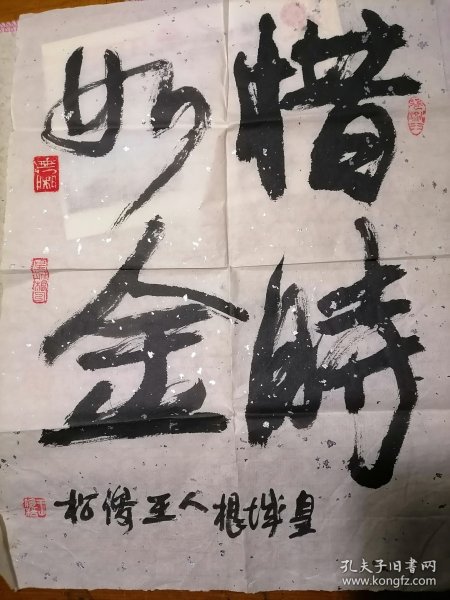 惜時
如金
皇城根人王俊松
孔夫子旧书网
www.kongfz.com